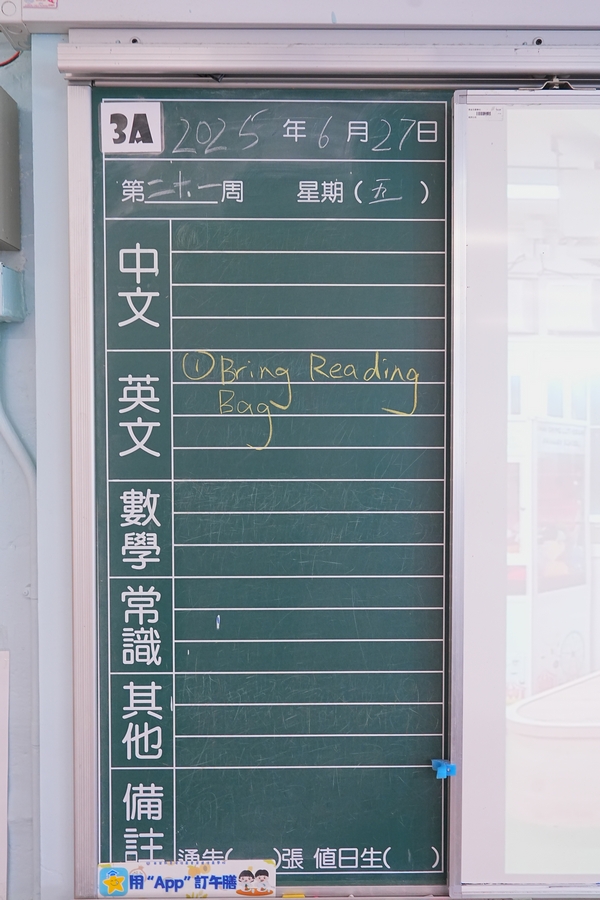 3A 2025年6月27日
第二十一周 星期(五)
中文
英文
①Bring Reading
Bag
數學
常識
其他
備註
通告( )張 值日生( )
用“App”訂午膳